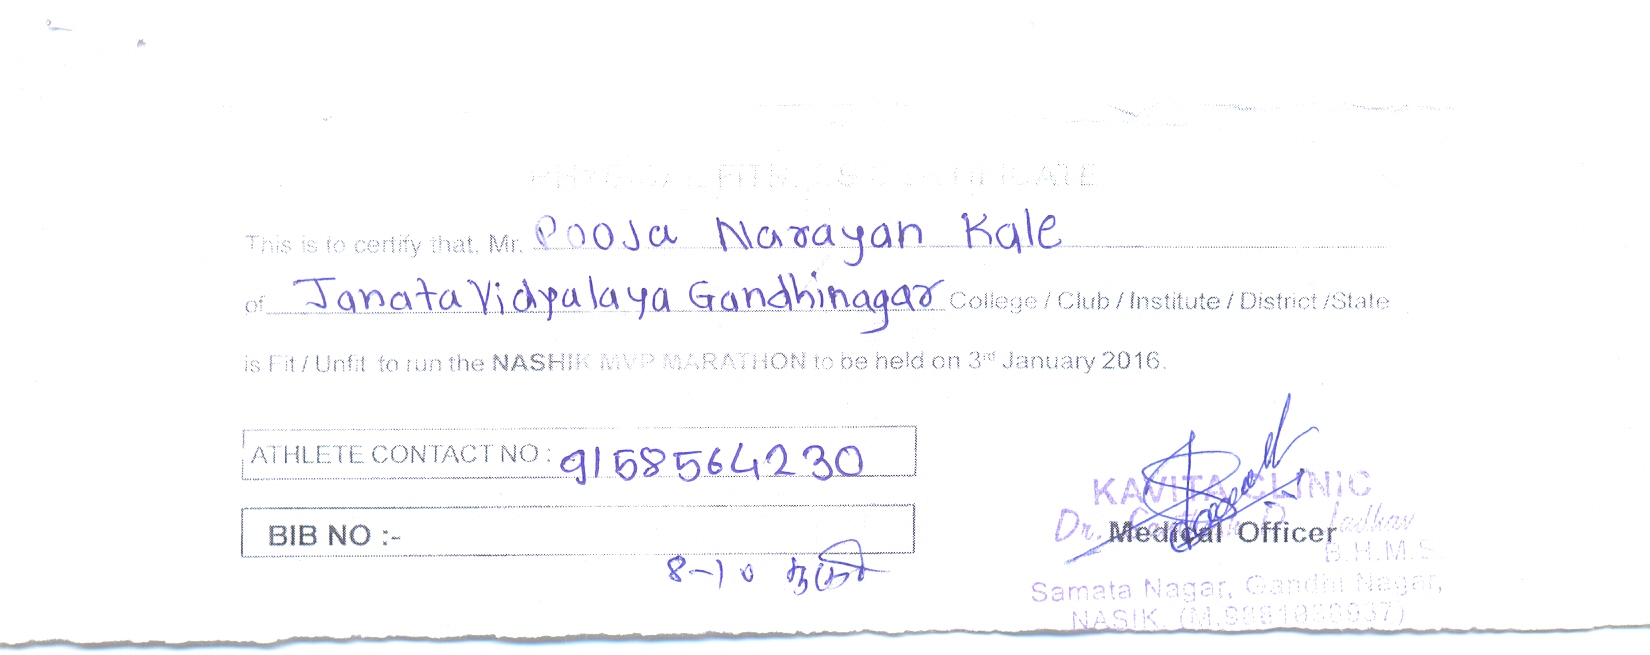 PHYSICAL FITNESS CERTIFICATE
This is to certify that, Mr. Pooja Narayan Kale
of Janata Vidyalaya Gandhinagar College / Club / Institute / District /State
is Fit / Unfit to run the NASHIK MVP MARATHON to be held on 3rd January 2016.
ATHLETE CONTACT NO : 9158564230
BIB NO :-
8-10
KAVITA CLINIC
Dr.
Medical Officer
B.H.M.S.
Samata Nagar, Gandhi Nagar,
NASIK.